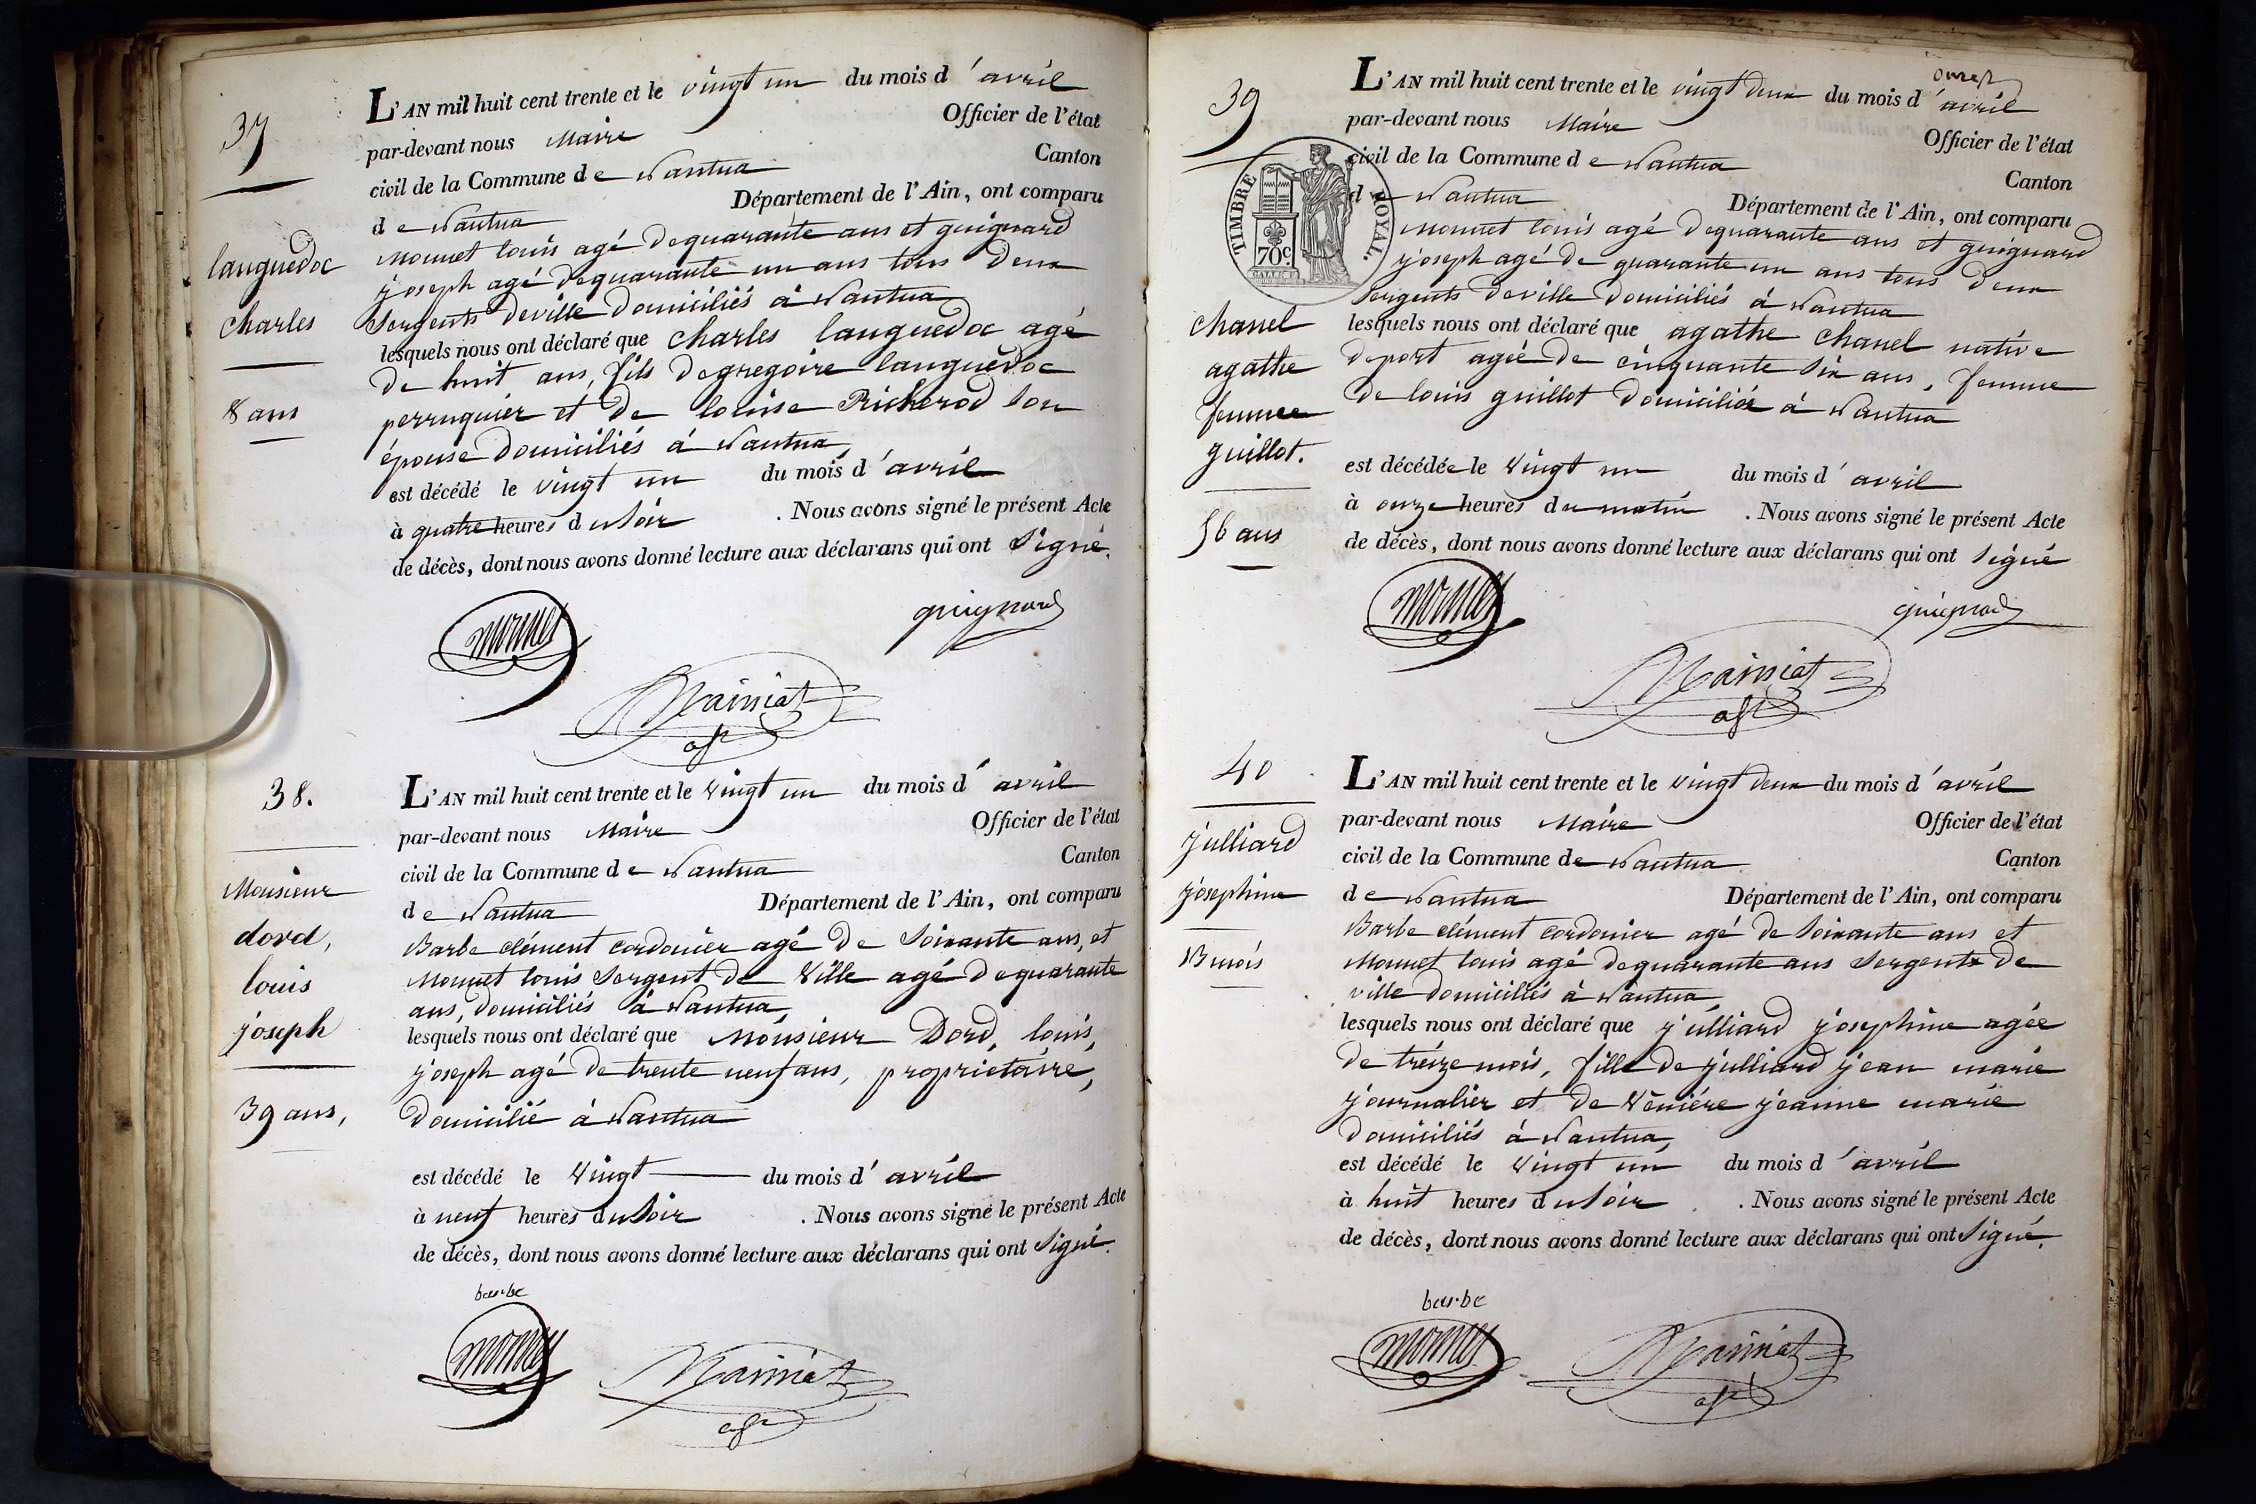 37
languedoc
charles
8 ans
L'AN mil huit cent trente et le vingt un du mois d'avril
par-devant nous Maire Officier de l'état
civil de la Commune de Nantua Canton
de Nantua Département de l'Ain, ont comparu
Monnet louis agé de quarante ans et guignard
joseph agé de quarante un ans tous deux
Sergents de ville domiciliés à Nantua
lesquels nous ont déclaré que Charles languedoc agé
de huit ans, fils de gregoire languedoc
perruquier et de louise Richerod son
épouse domiciliés à Nantua,
est décédé le vingt un du mois d'avril
à quatre heures du soir . Nous avons signé le présent Acte
de décès, dont nous avons donné lecture aux déclarans qui ont signé.
monnet guignard
38.
Monsieur
dord,
louis
joseph
39 ans,
L'AN mil huit cent trente et le vingt un du mois d'avril
par-devant nous Maire Officier de l'état
civil de la Commune de Nantua Canton
de Nantua Département de l'Ain, ont comparu
Barbe clément cordonier agé de soixante ans, et
Monnet louis Sergent de Ville agé de quarante
ans, domiciliés à Nantua,
lesquels nous ont déclaré que Monsieur Dord, louis,
joseph agé de trente neuf ans, proprietaire,
domicilié à Nantua
est décédé le vingt du mois d'avril
à neuf heures du soir . Nous avons signé le présent Acte
de décès, dont nous avons donné lecture aux déclarans qui ont signé.
barbe
monnet
39
TIMBRE ROYAL.
70c
chanel
agathe
femme
guillot.
56 ans
L'AN mil huit cent trente et le vingt deux du mois d'avril
par-devant nous Maire Officier de l'état
civil de la Commune de Nantua Canton
de Nantua Département de l'Ain, ont comparu
Monnet louis agé de quarante ans et guignard
joseph agé de quarante un ans tous deux
sergents de ville domiciliés à Nantua
lesquels nous ont déclaré que agathe chanel native
de port agée de cinquante six ans, femme
de louis guillot domiciliée à Nantua
est décédée le vingt un du mois d'avril
à onze heures du matin . Nous avons signé le présent Acte
de décès, dont nous avons donné lecture aux déclarans qui ont signé
monnet guignard
40
julliard
josephine
13 mois
L'AN mil huit cent trente et le vingt deux du mois d'avril
par-devant nous Maire Officier de l'état
civil de la Commune de Nantua Canton
de Nantua Département de l'Ain, ont comparu
Barbe clément cordonier agé de soixante ans et
Monnet louis agé de quarante ans sergents de
ville domiciliés à Nantua,
lesquels nous ont déclaré que julliard josephine agée
de treize mois, fille de julliard jean marie
journalier et de Vêniére jeanne marie
domiciliés à Nantua,
est décédé le vingt un du mois d'avril
à huit heures du soir . Nous avons signé le présent Acte
de décès, dont nous avons donné lecture aux déclarans qui ont signé.
barbe
monnet